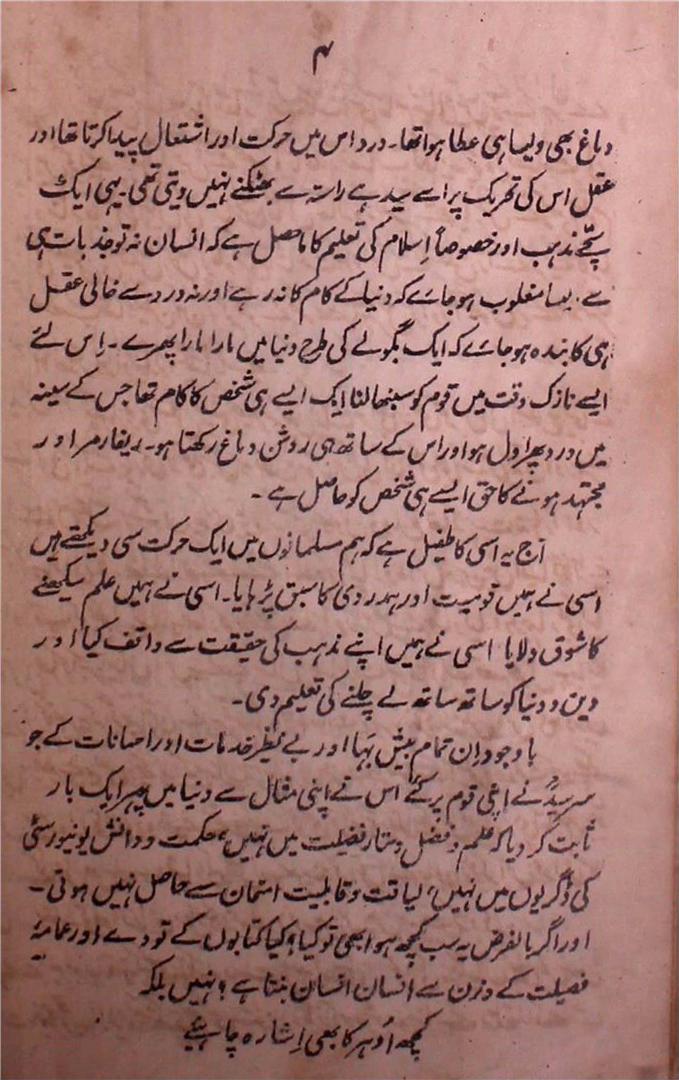 ۴
دماغ بھی ویسا ہی عطا ہوا تھا۔ درد اس میں حرکت اور اشتعال پیدا کرتا تھا اور
عقل اس کی تحریک پر اسے سیدھے راستہ سے بھٹکنے نہیں دیتی تھی۔ یہی ایک
سچّے مذہب اور خصوصاً اِسلام کی تعلیم کا ماحصل ہے کہ انسان نہ تو جذبات ہی
سے ایسا مغلوب ہو جائے کہ دنیا کے کام کا نہ رہے اور نہ درد سے خالی عقل
ہی کا بندہ ہو جائے کہ ایک بگولے کی طرح دنیا میں مارا مارا پھرے۔ اِس لئے
ایسے نازک وقت میں قوم کو سنبھالنا ایک ایسے ہی شخص کا کام تھا جس کے سینہ
میں درد بھرا دل ہو اور اس کے ساتھ ہی روشن دماغ رکھتا ہو۔ ریفارمر اور
مجتہد ہونے کا حق ایسے ہی شخص کو حاصل ہے۔
آج یہ اسی کا طفیل ہے کہ ہم مسلمانوں میں ایک حرکت سی دیکھتے ہیں
اسی نے ہمیں قومیت اور ہمدردی کا سبق پڑہایا۔ اسی نے ہمیں علم سیکھنے
کا شوق دلایا اسی نے ہمیں اپنے مذہب کی حقیقت سے واقف کیا اور
دین و دنیا کو ساتھ ساتھ لے چلنے کی تعلیم دی۔
باوجود اِن تمام بیش بہا اور بے نظیر خدمات اور احسانات کے جو
سرسیدؒ نے اپنی قوم پر کئے اس نے اپنی مثال سے دنیا میں پھر ایک بار
ثابت کر دیا کہ علم و فضل دستار فضیلت میں نہیں، حکمت و دانش یونیورسٹی
کی ڈگریوں میں نہیں، لیاقت و قابلیت امتحان سے حاصل نہیں ہوتی۔
اور اگر بالفرض یہ سب کچھ ہوا بھی تو کیا؟ کیا کتابوں کے تودے اور عمامۂ
فضیلت کے وزن سے انسان انسان بنتا ہے؟ نہیں بلکہ
کچھ اُدہر کا بھی اِشارہ چاہئیے